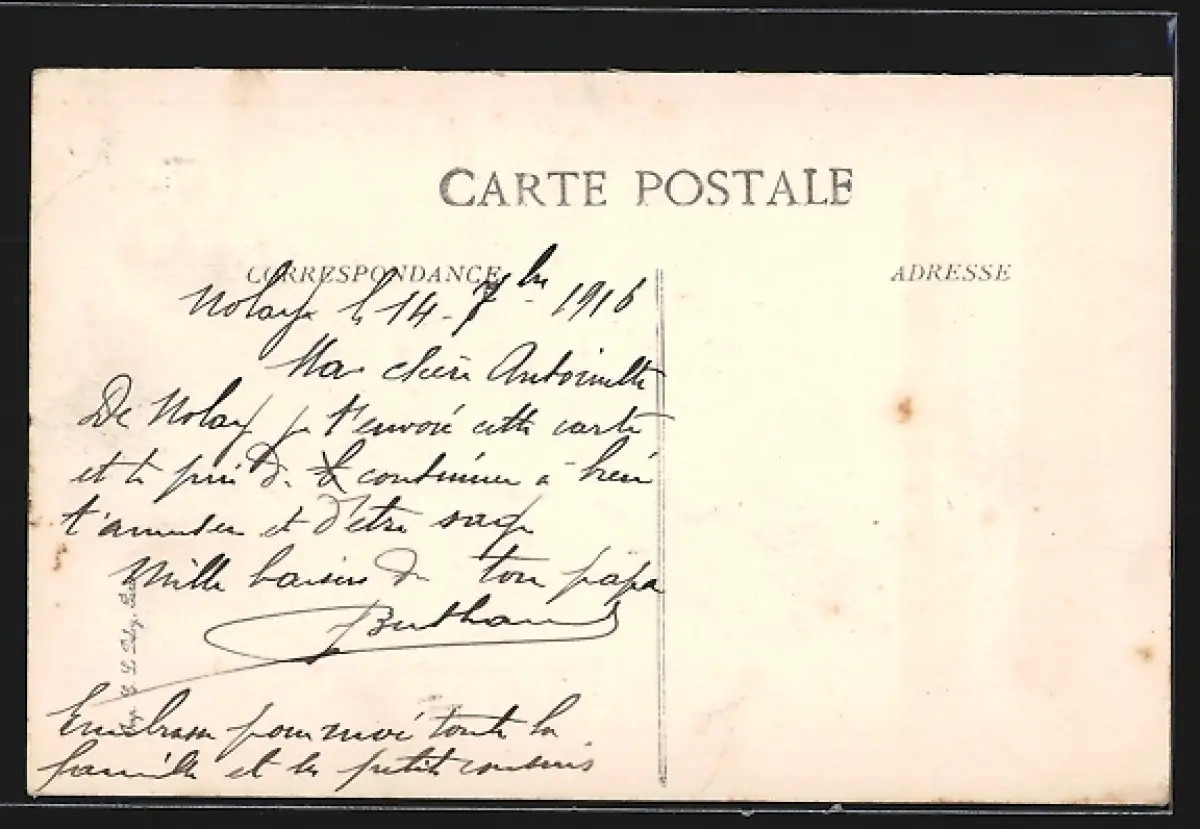 CARTE POSTALE
CORRESPONDANCE
ADRESSE
Nolay le 14 - 7bre 1916
Ma chère Antoinette
De Nolay je t'envoie cette carte
et te prie de continuer à bien
t'amuser et d'être sage
Mille baisers de ton papa
Embrasse pour moi toute la
famille et les petits cousins